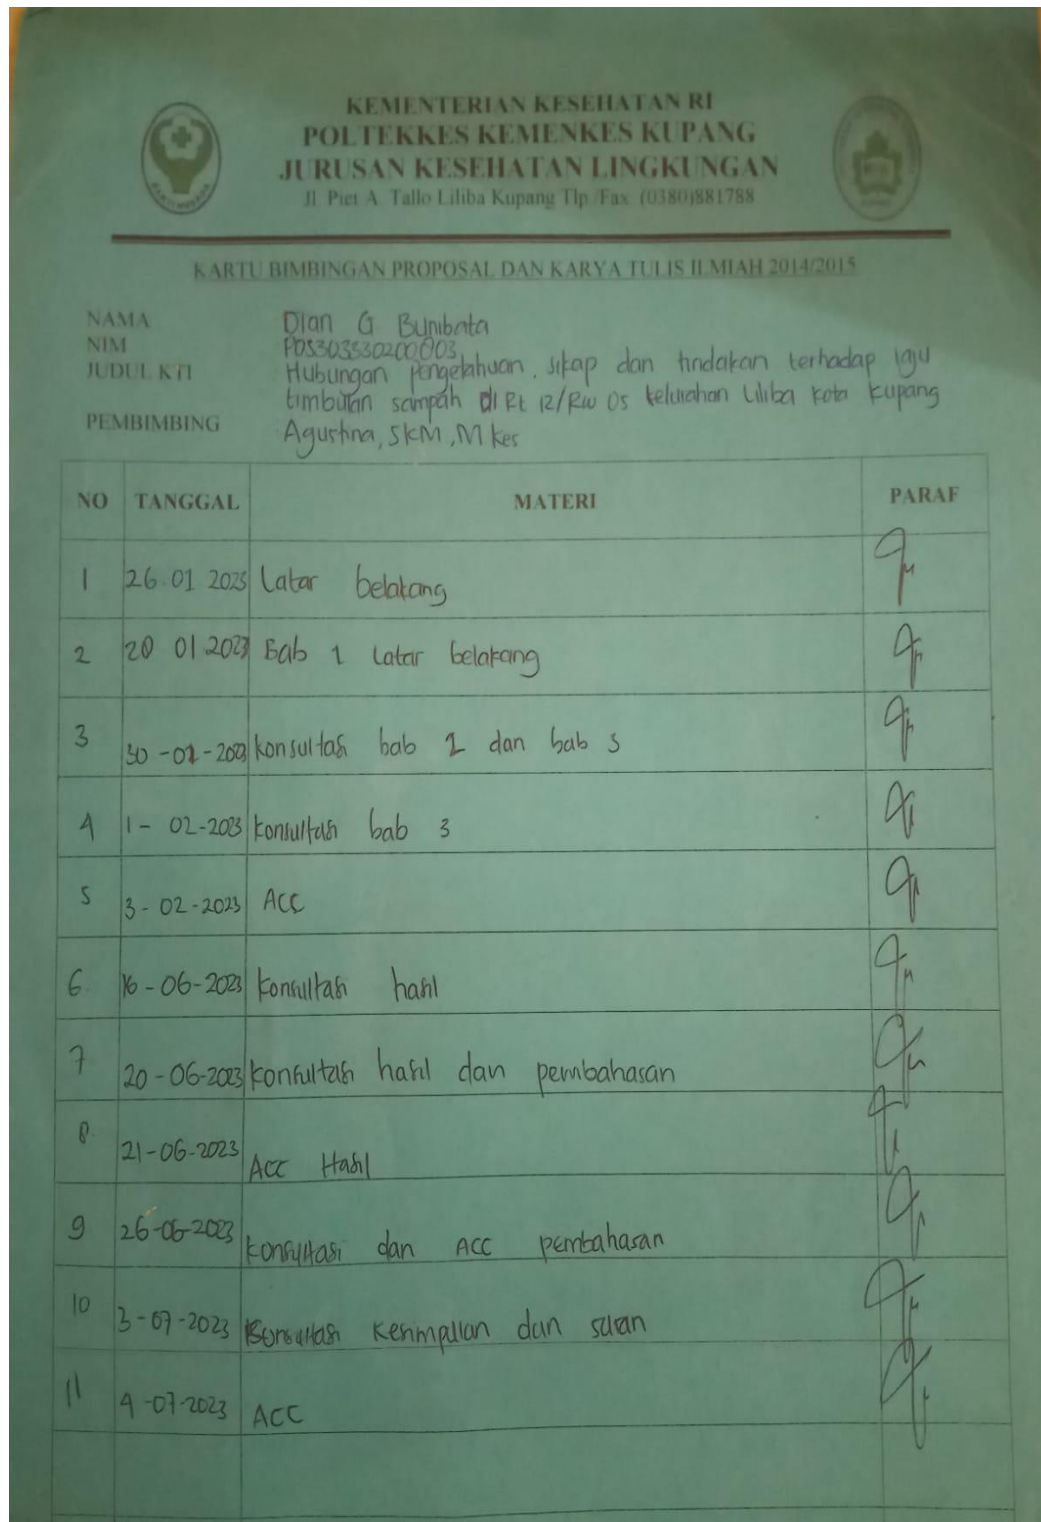 KEMENTERIAN KESEHATAN RI
POLTEKKES KEMENKES KUPANG
JURUSAN KESEHATAN LINGKUNGAN
Jl. Piet A. Tallo Liliba Kupang Tlp./Fax. (0380)881788
KARTU BIMBINGAN PROPOSAL DAN KARYA TULIS ILMIAH 2014/2015
NAMA Dian G Bunibata
NIM PO5303330200003
JUDUL KTI Hubungan pengetahuan, sikap dan tindakan terhadap laju
timbulan sampah di Rt 12/Rw 05 kelurahan Liliba kota Kupang
PEMBIMBING Agustina, SKM, M Kes
NO TANGGAL MATERI PARAF
1 26.01 2023 Latar belakang
2 01 2023 Bab 1 Latar belakang
3 30-01-2023 konsultasi bab 2 dan bab 3
4 1-02-2023 konsultasi bab 3
5 3-02-2023 ACC
6. 16-06-2023 konsultasi hasil
7 20-06-2023 konsultasi hasil dan pembahasan
8. 21-06-2023 ACC Hasil
9 26-06-2023 konsultasi dan ACC pembahasan
10 3-07-2023 Konsultasi Kesimpulan dan saran
11 4-07-2023 ACC